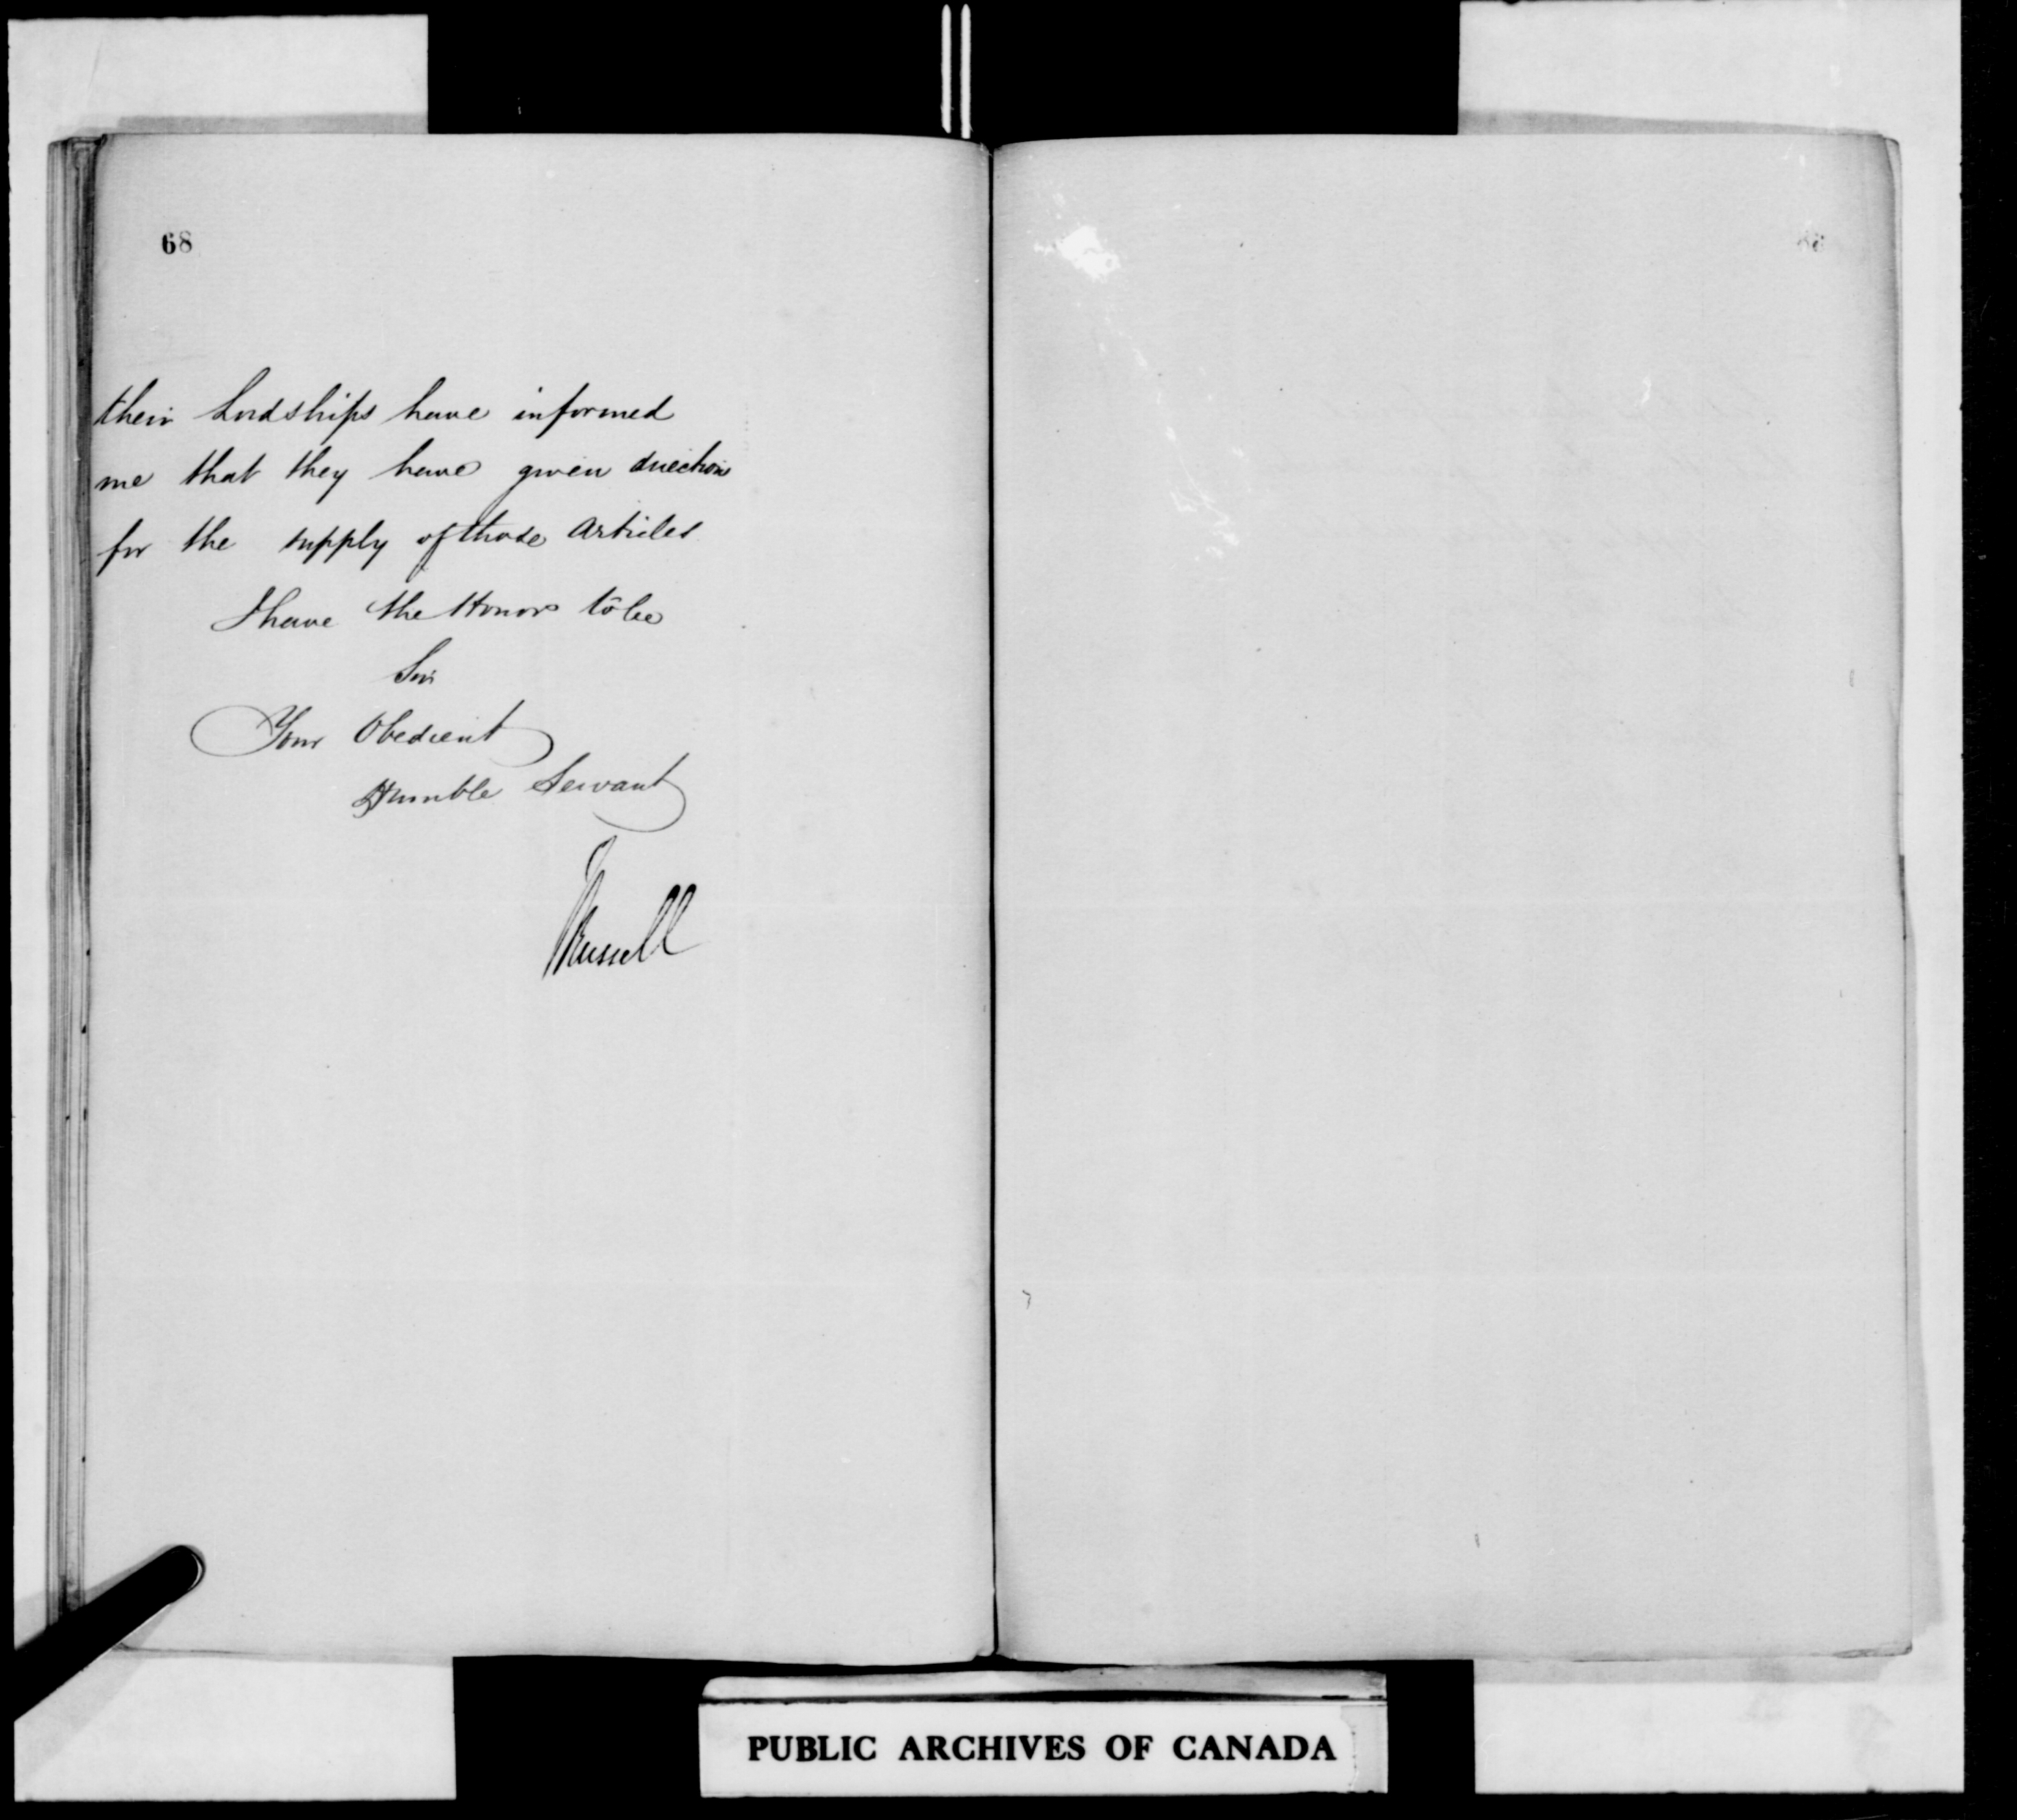 68
their Lordships have informed
me that they have given directions
for the supply of those articles
I have the Honor to be
Sir
Your Obedient
Humble Servant
J Russell
PUBLIC ARCHIVES OF CANADA